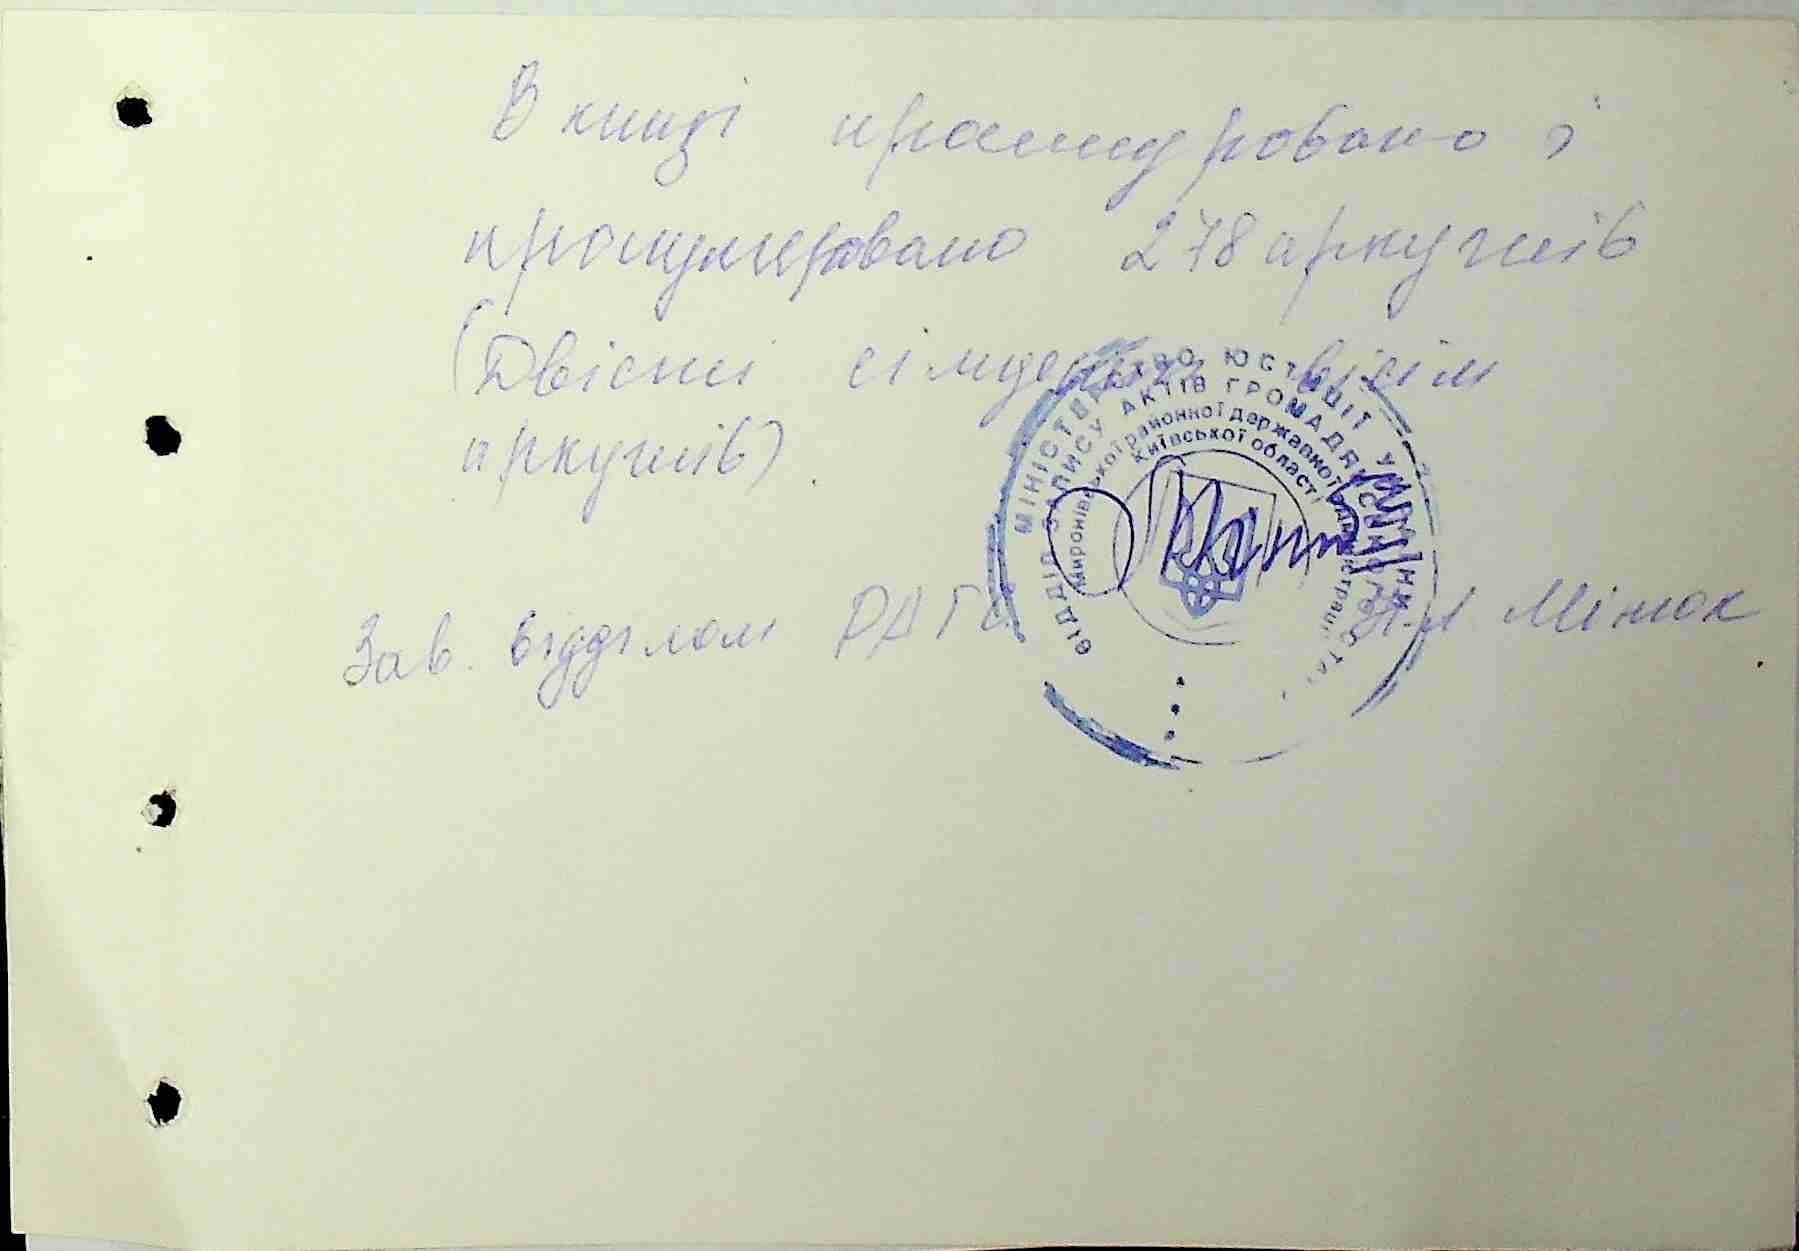 В книзі прошнуровано і
пронумеровано 278 аркушів
(Двісті сімдесят вісім
аркушів).
Зав. відділом РАГС Мінюк
МІНІСТЕРСТВО ЮСТИЦІЇ УКРАЇНИ
ВІДДІЛ ЗАПИСУ АКТІВ ГРОМАДЯНСЬКОГО СТА
Миронівської районної державної адміністрації
Київської області